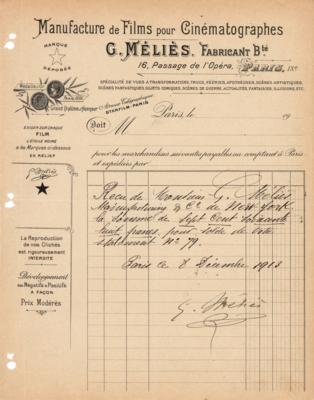 Manufacture de Films pour Cinématographes
G. MÉLIÈS, FABRICANT Bté
16, Passage de l'Opéra, PARIS, IXe
MARQUE
DÉPOSÉE
SPÉCIALITÉ DE VUES A TRANSFORMATIONS, TRUCS, FÉERIES, APOTHÉOSES, SCÈNES ARTISTIQUES,
SCÈNES FANTASTIQUES, SUJETS COMIQUES, SCÈNES DE GUERRE, ACTUALITÉS, FANTAISIES, ILLUSIONS, ETC.
Grand Diplôme d'Honneur
Adresse Télégraphique
STARFILM-PARIS
Paris, le 19
Doit M
EXIGER SUR CHAQUE
FILM
L'ÉTOILE NOIRE
& les Marques ci-dessous
EN RELIEF
pour les marchandises suivantes payables au comptant à Paris
et expédiées par
La Reproduction
de nos Clichés
est rigoureusement
INTERDITE
Développement
des Négatifs & Positifs
A FAÇON
Prix Modérés
Reçu de Monsieur G. Méliès
Manufacturing & Co de New York
la somme de Sept Cent Soixante
huit francs, pour solde de votre
statement No 79.
Paris ce 8 Décembre 1903
G. Méliès